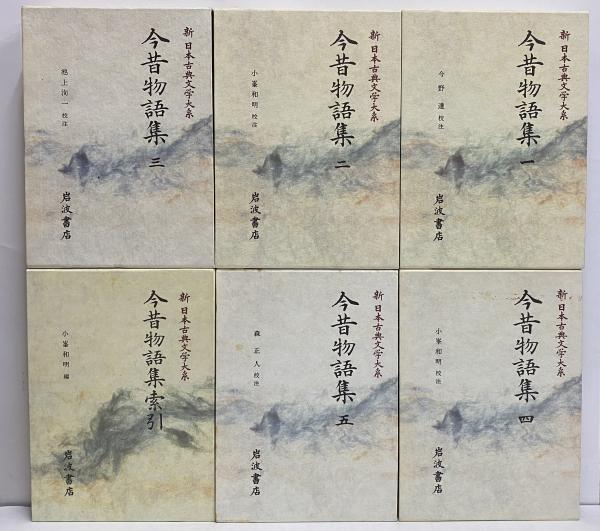 新 日本古典文学大系
今昔物語集 一
今野 達 校注
岩波書店
新 日本古典文学大系
今昔物語集 二
小峯和明 校注
岩波書店
新 日本古典文学大系
今昔物語集 三
池上洵一 校注
岩波書店
新 日本古典文学大系
今昔物語集 四
小峯和明 校注
岩波書店
新 日本古典文学大系
今昔物語集 五
森 正人 校注
岩波書店
新 日本古典文学大系
今昔物語集索引
小峯和明 編
岩波書店